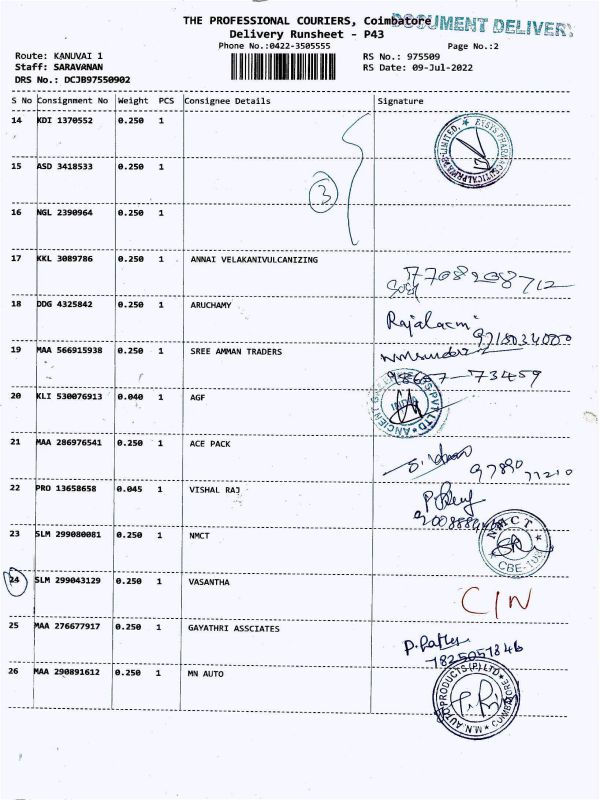 THE PROFESSIONAL COURIERS, Coimbatore
DOCUMENT DELIVERY
Delivery Runsheet - P43
Phone No.:0422-3505555
Page No.:2
Route: KANUVAI 1
RS No.: 975509
Staff: SARAVANAN
RS Date: 09-Jul-2022
DRS No.: DCJB97550902
S No Consignment No Weight PCS Consignee Details Signature
14 KDI 1370552 0.250 1
15 ASD 3418533 0.250 1
3
16 NGL 2390964 0.250 1
17 KKL 3089786 0.250 1 ANNAI VELAKANIVULCANIZING
7708208712
18 DDG 4325842 0.250 1 ARUCHAMY
9718034000
19 MAA 566915938 0.250 1 SREE AMMAN TRADERS
73459
20 KLI 530076913 0.040 1 AGF
INDIA
21 MAA 286976541 0.250 1 ACE PACK
22 PRO 13658658 0.045 1 VISHAL RAJ
23 SLM 299080081 0.250 1 NMCT
NMCT
24 SLM 299043129 0.250 1 VASANTHA
C/N
25 MAA 276677917 0.250 1 GAYATHRI ASSCIATES
7825051346
26 MAA 290891612 0.250 1 MN AUTO
M.N.AUTO PRODUCTS (P) LTD